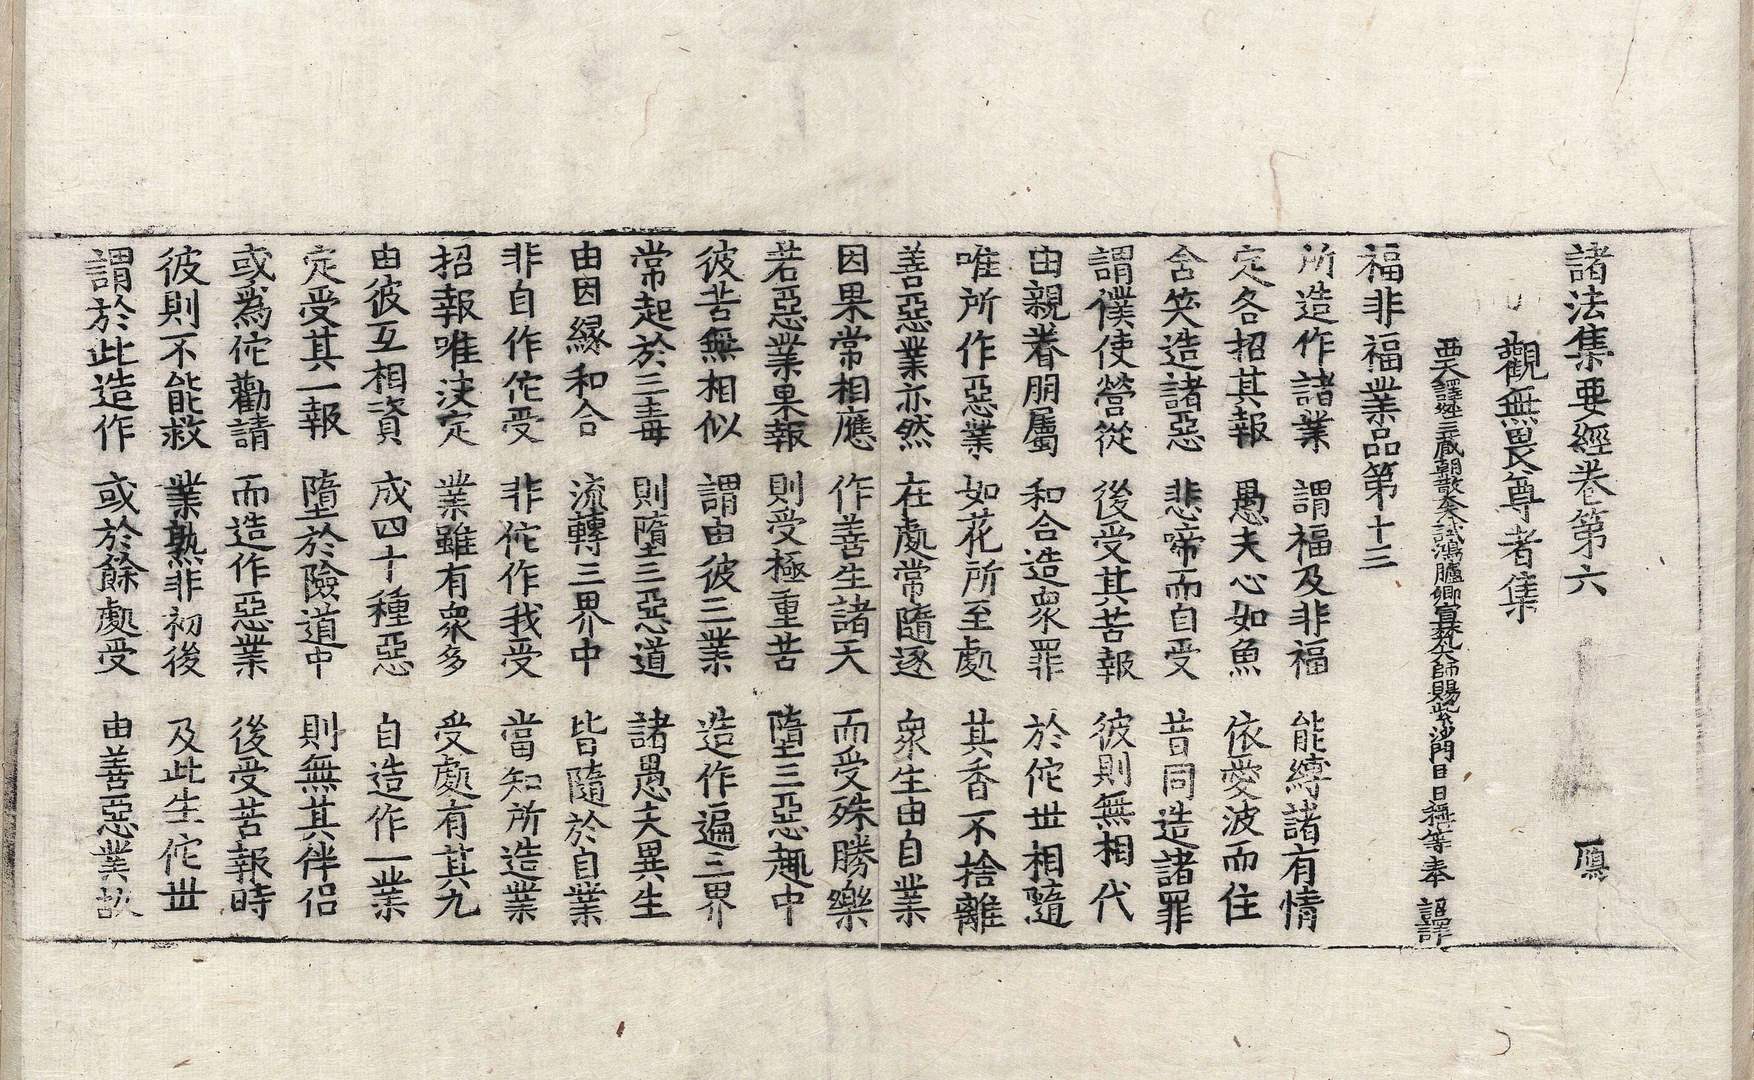 諸法集要經卷第六 鴈
觀無畏尊者集
西天譯經三藏朝散大夫試鴻臚卿宣梵大師賜紫沙門臣日稱等奉 詔譯
福非福業品第十三
所造作諸業 謂福及非福 能縛諸有情
定各招其報 愚夫心如魚 依愛波而住
含笑造諸惡 悲啼而自受 昔同造諸罪
謂僕使營從 後受其苦報 彼則無相代
由親眷朋屬 和合造衆罪 於佗世相隨
唯所作惡業 如花所至處 其香不捨離
善惡業亦然 在處常隨逐 衆生由自業
因果常相應 作善生諸天 而受殊勝樂
若惡業果報 則受極重苦 墮三惡趣中
彼苦無相似 謂由彼三業 造作遍三界
常起於三毒 則墮三惡道 諸愚夫異生
由因緣和合 流轉三界中 皆隨於自業
非自作佗受 非佗作我受 當知所造業
招報唯決定 業雖有衆多 受處有其九
由彼互相資 成四十種惡 自造作一業
定受其一報 墮於險道中 則無其伴侣
或為佗勸請 而造作惡業 後受苦報時
彼則不能救 業熟非初後 及此生佗世
謂於此造作 或於餘處受 由善惡業故